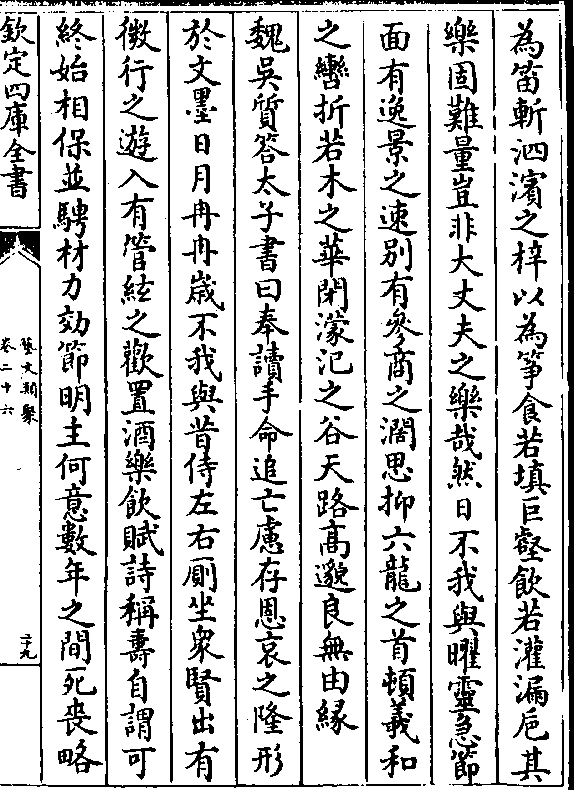 為笛斬泗濱之梓以為筝食若填巨壑飲若灌漏巵其
樂固難量豈非大丈夫之樂哉然日不我與曜靈急節
面有逸景之速别有參商之濶思抑六龍之首頓羲和
之轡折若木之華閉濛汜之谷天路髙邈良無由緣
魏吳質答太子書曰奉讀手命追亡慮存恩哀之隆形
於文墨日月冉冉嵗不我與昔侍左右厠坐衆賢出有
微行之遊入有管絃之歡置酒樂飲賦詩稱壽自謂可
終始相保並騁材力効節明主何意數年之間死喪略
欽定四庫全書
藝文類聚
卷二十六
二十九